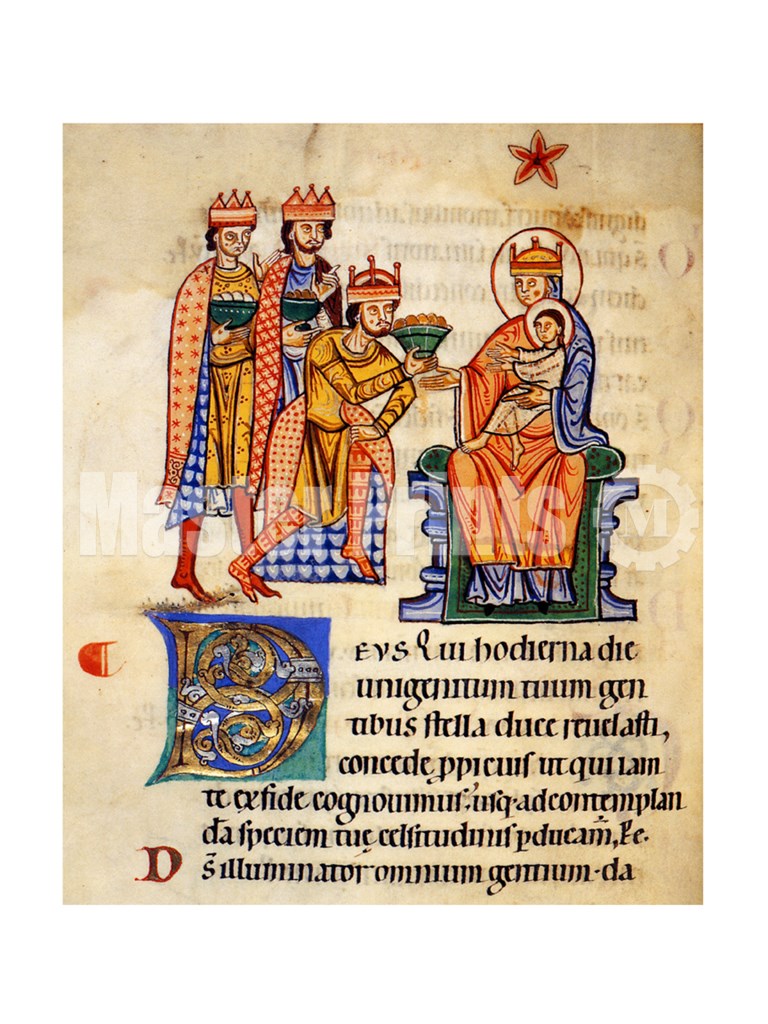 MasterPrints
DEVS Qui hodierna die
unigenitum tuum gen
tibus stella duce reuelasti,
concede ꝓpicius ut qui iam
te ex fide cognouimus, usq; ad contemplan
da speciem tuę celsitudinis ꝑducam̄, ꝑe.
D s̄ illuminator omnium gentium · da